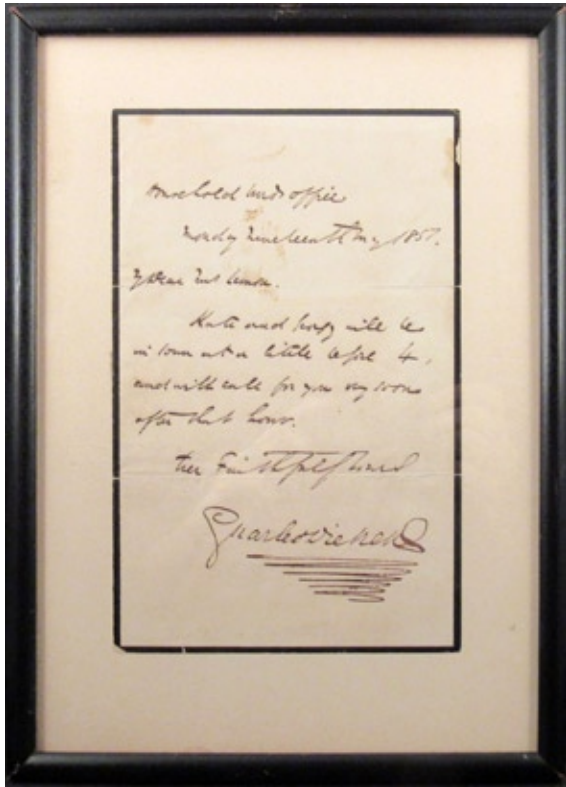 Household Words office
Monday Nineteenth May 1851.
My Dear Mrs Lemon.
Kate and Georgy will be
in town at a little before 4,
and will call for you very soon
after that hour.
Ever Faithfully Yours
Charles Dickens